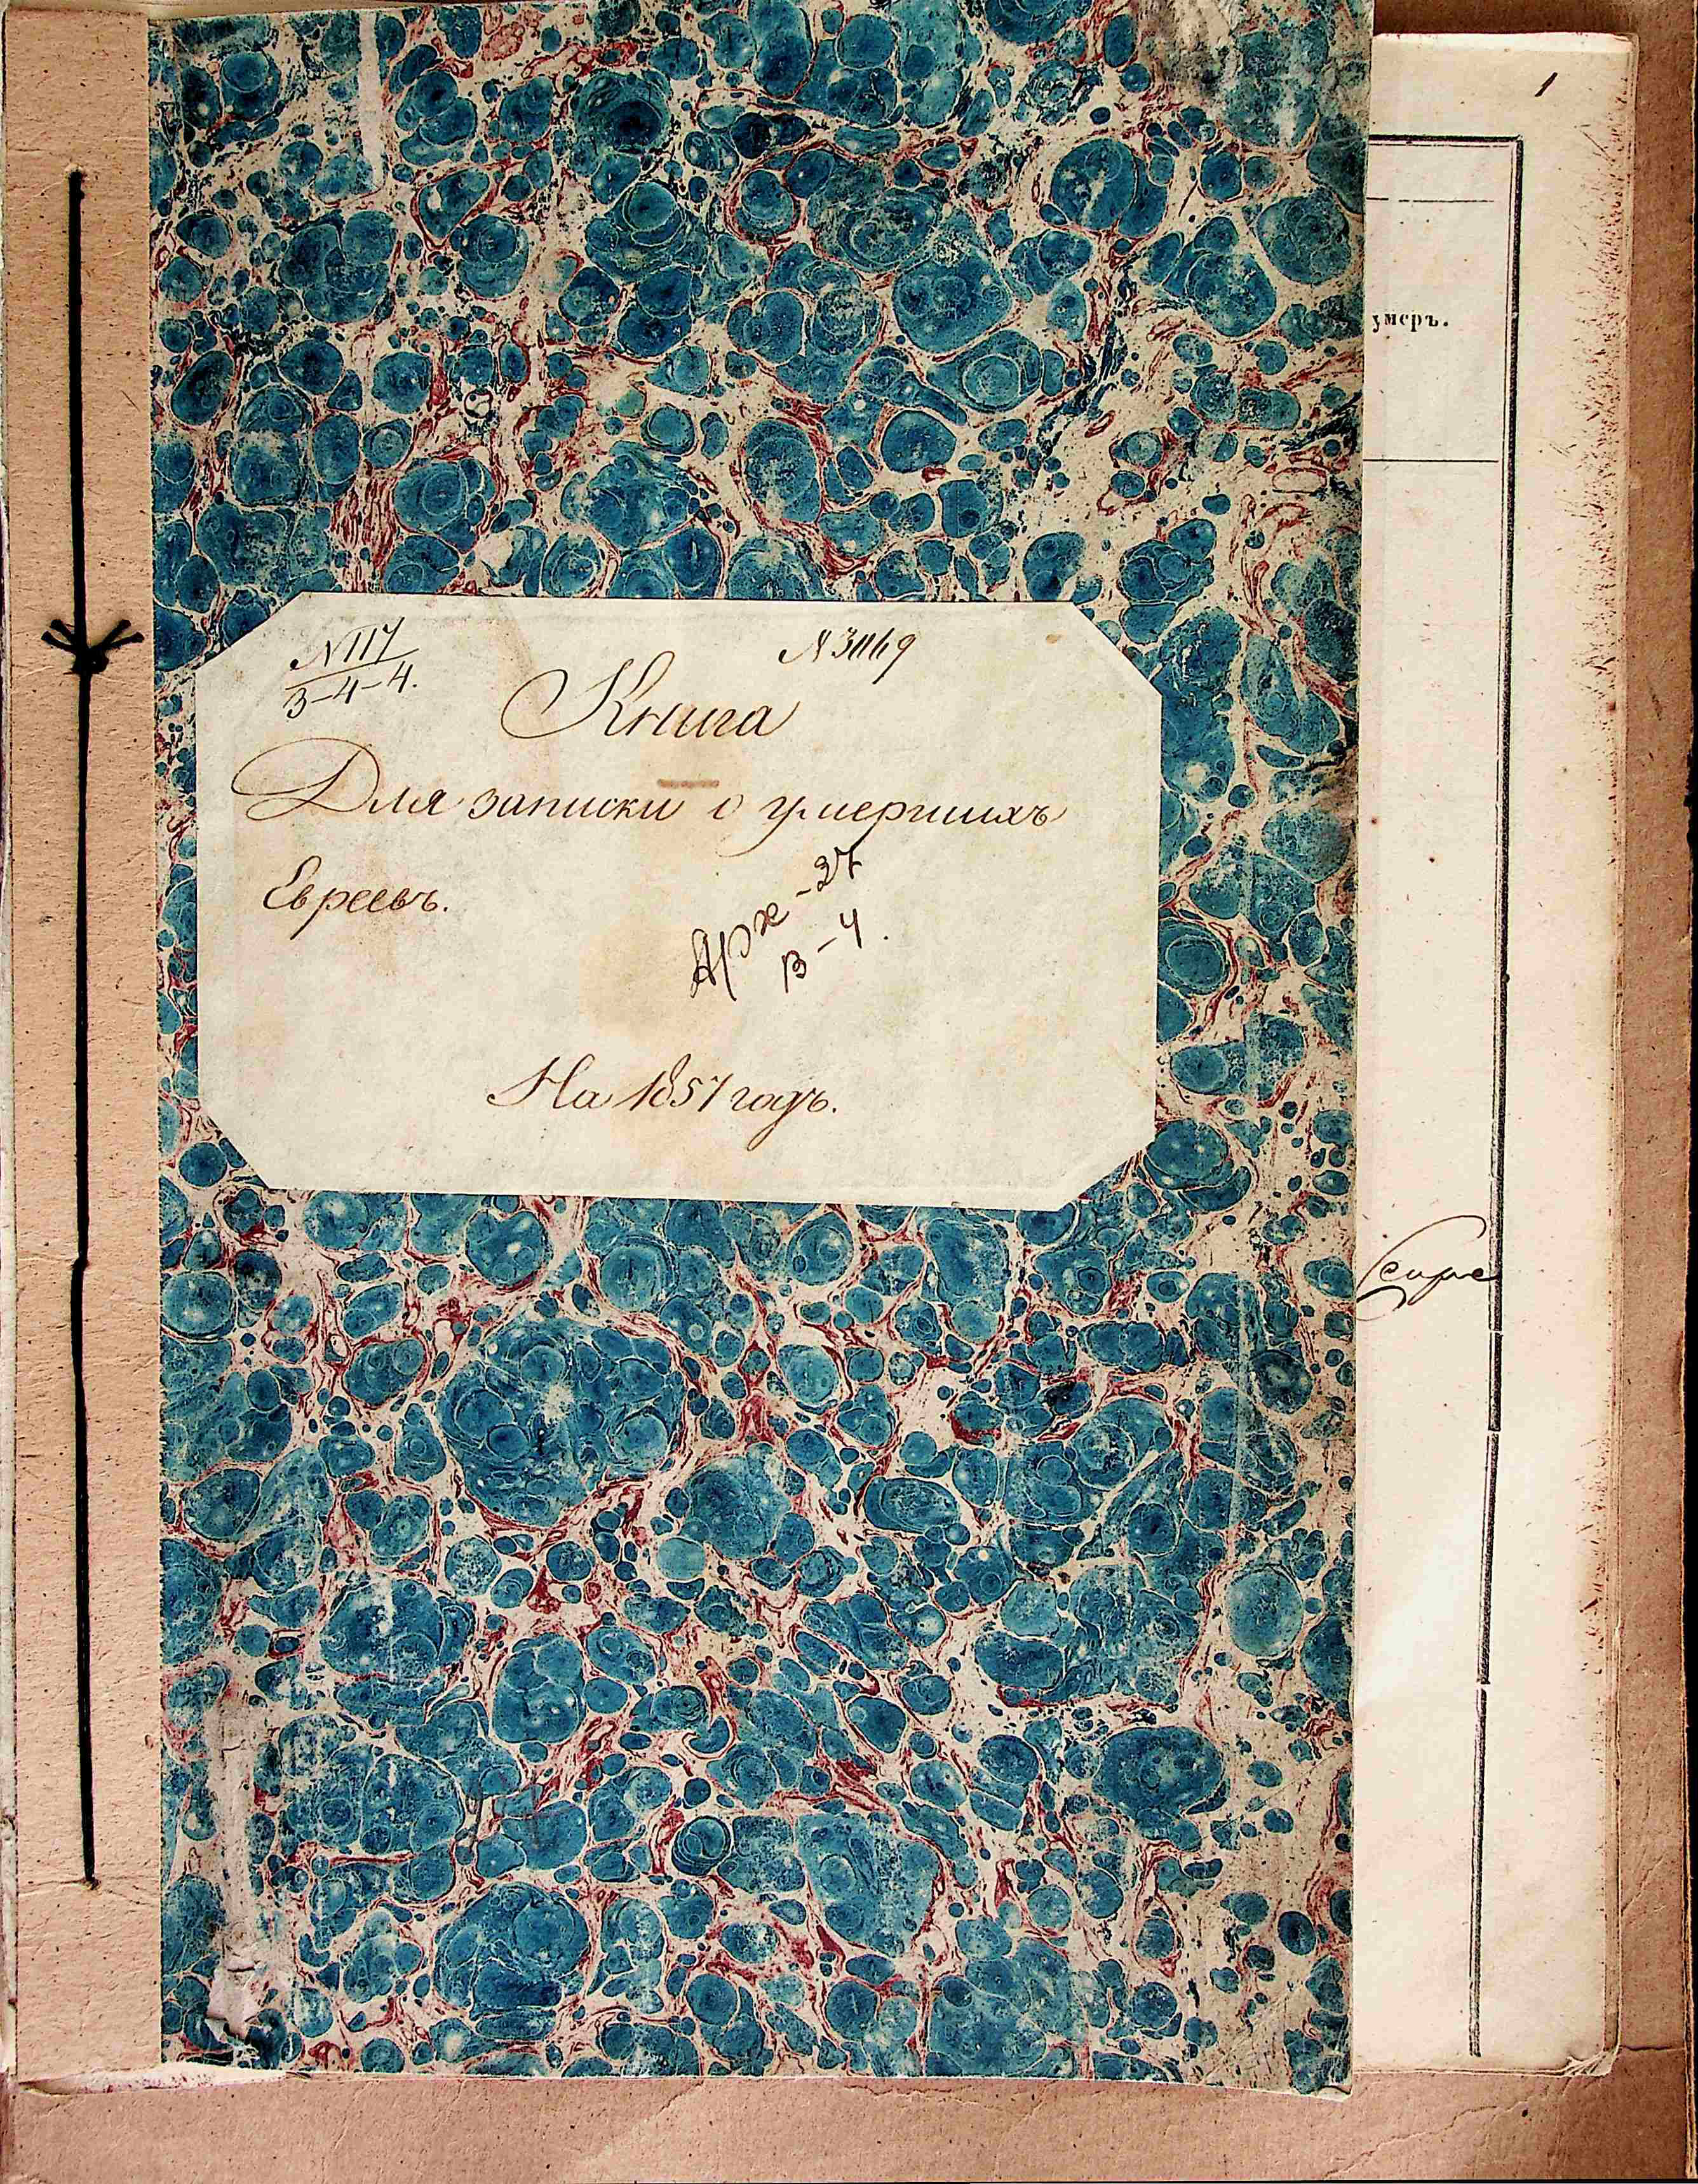 N 117
3-4-4.
Книга
Для записки о умершихъ
Евреевъ.
Арх - 27
В - 4.
На 1857 годъ.
1
умеръ.